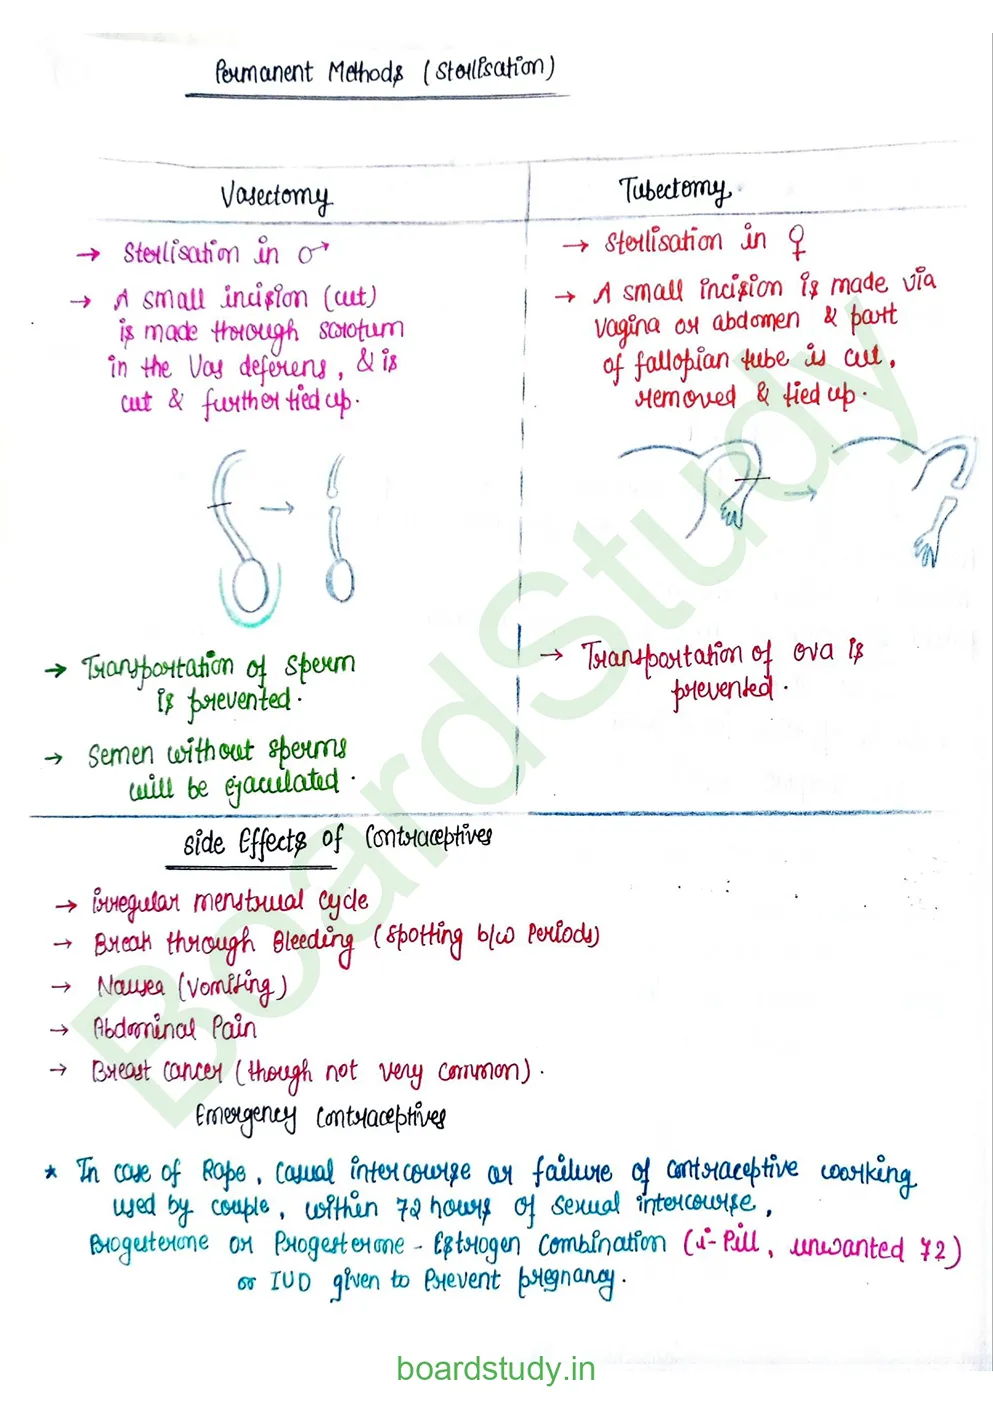 Permanent Methods (Sterlisation)
Vasectomy
→ Sterlisation in ♂
→ A small incision (cut)
is made through scrotum
in the Vas deferens, & is
cut & further tied up.
→ Transportation of sperm
is prevented.
→ Semen without sperms
will be ejaculated.
Tubectomy
→ Sterlisation in ♀
→ A small incision is made via
vagina or abdomen & part
of fallopian tube is cut,
removed & tied up.
→ Transportation of ova is
prevented.
Side Effects of Contraceptives
→ irregular menstrual cycle
→ Break through Bleeding (spotting b/w Periods)
→ Nausea (vomiting)
→ Abdominal Pain
→ Breast cancer (though not very common).
Emergency Contraceptives
* In case of Rape, Casual intercourse or failure of contraceptive working
used by couple, within 72 hours of sexual intercourse,
Progesterone or Progesterone - Estrogen Combination (i-Pill, unwanted 72)
or IUD given to Prevent pregnancy.
BoardStudy
boardstudy.in